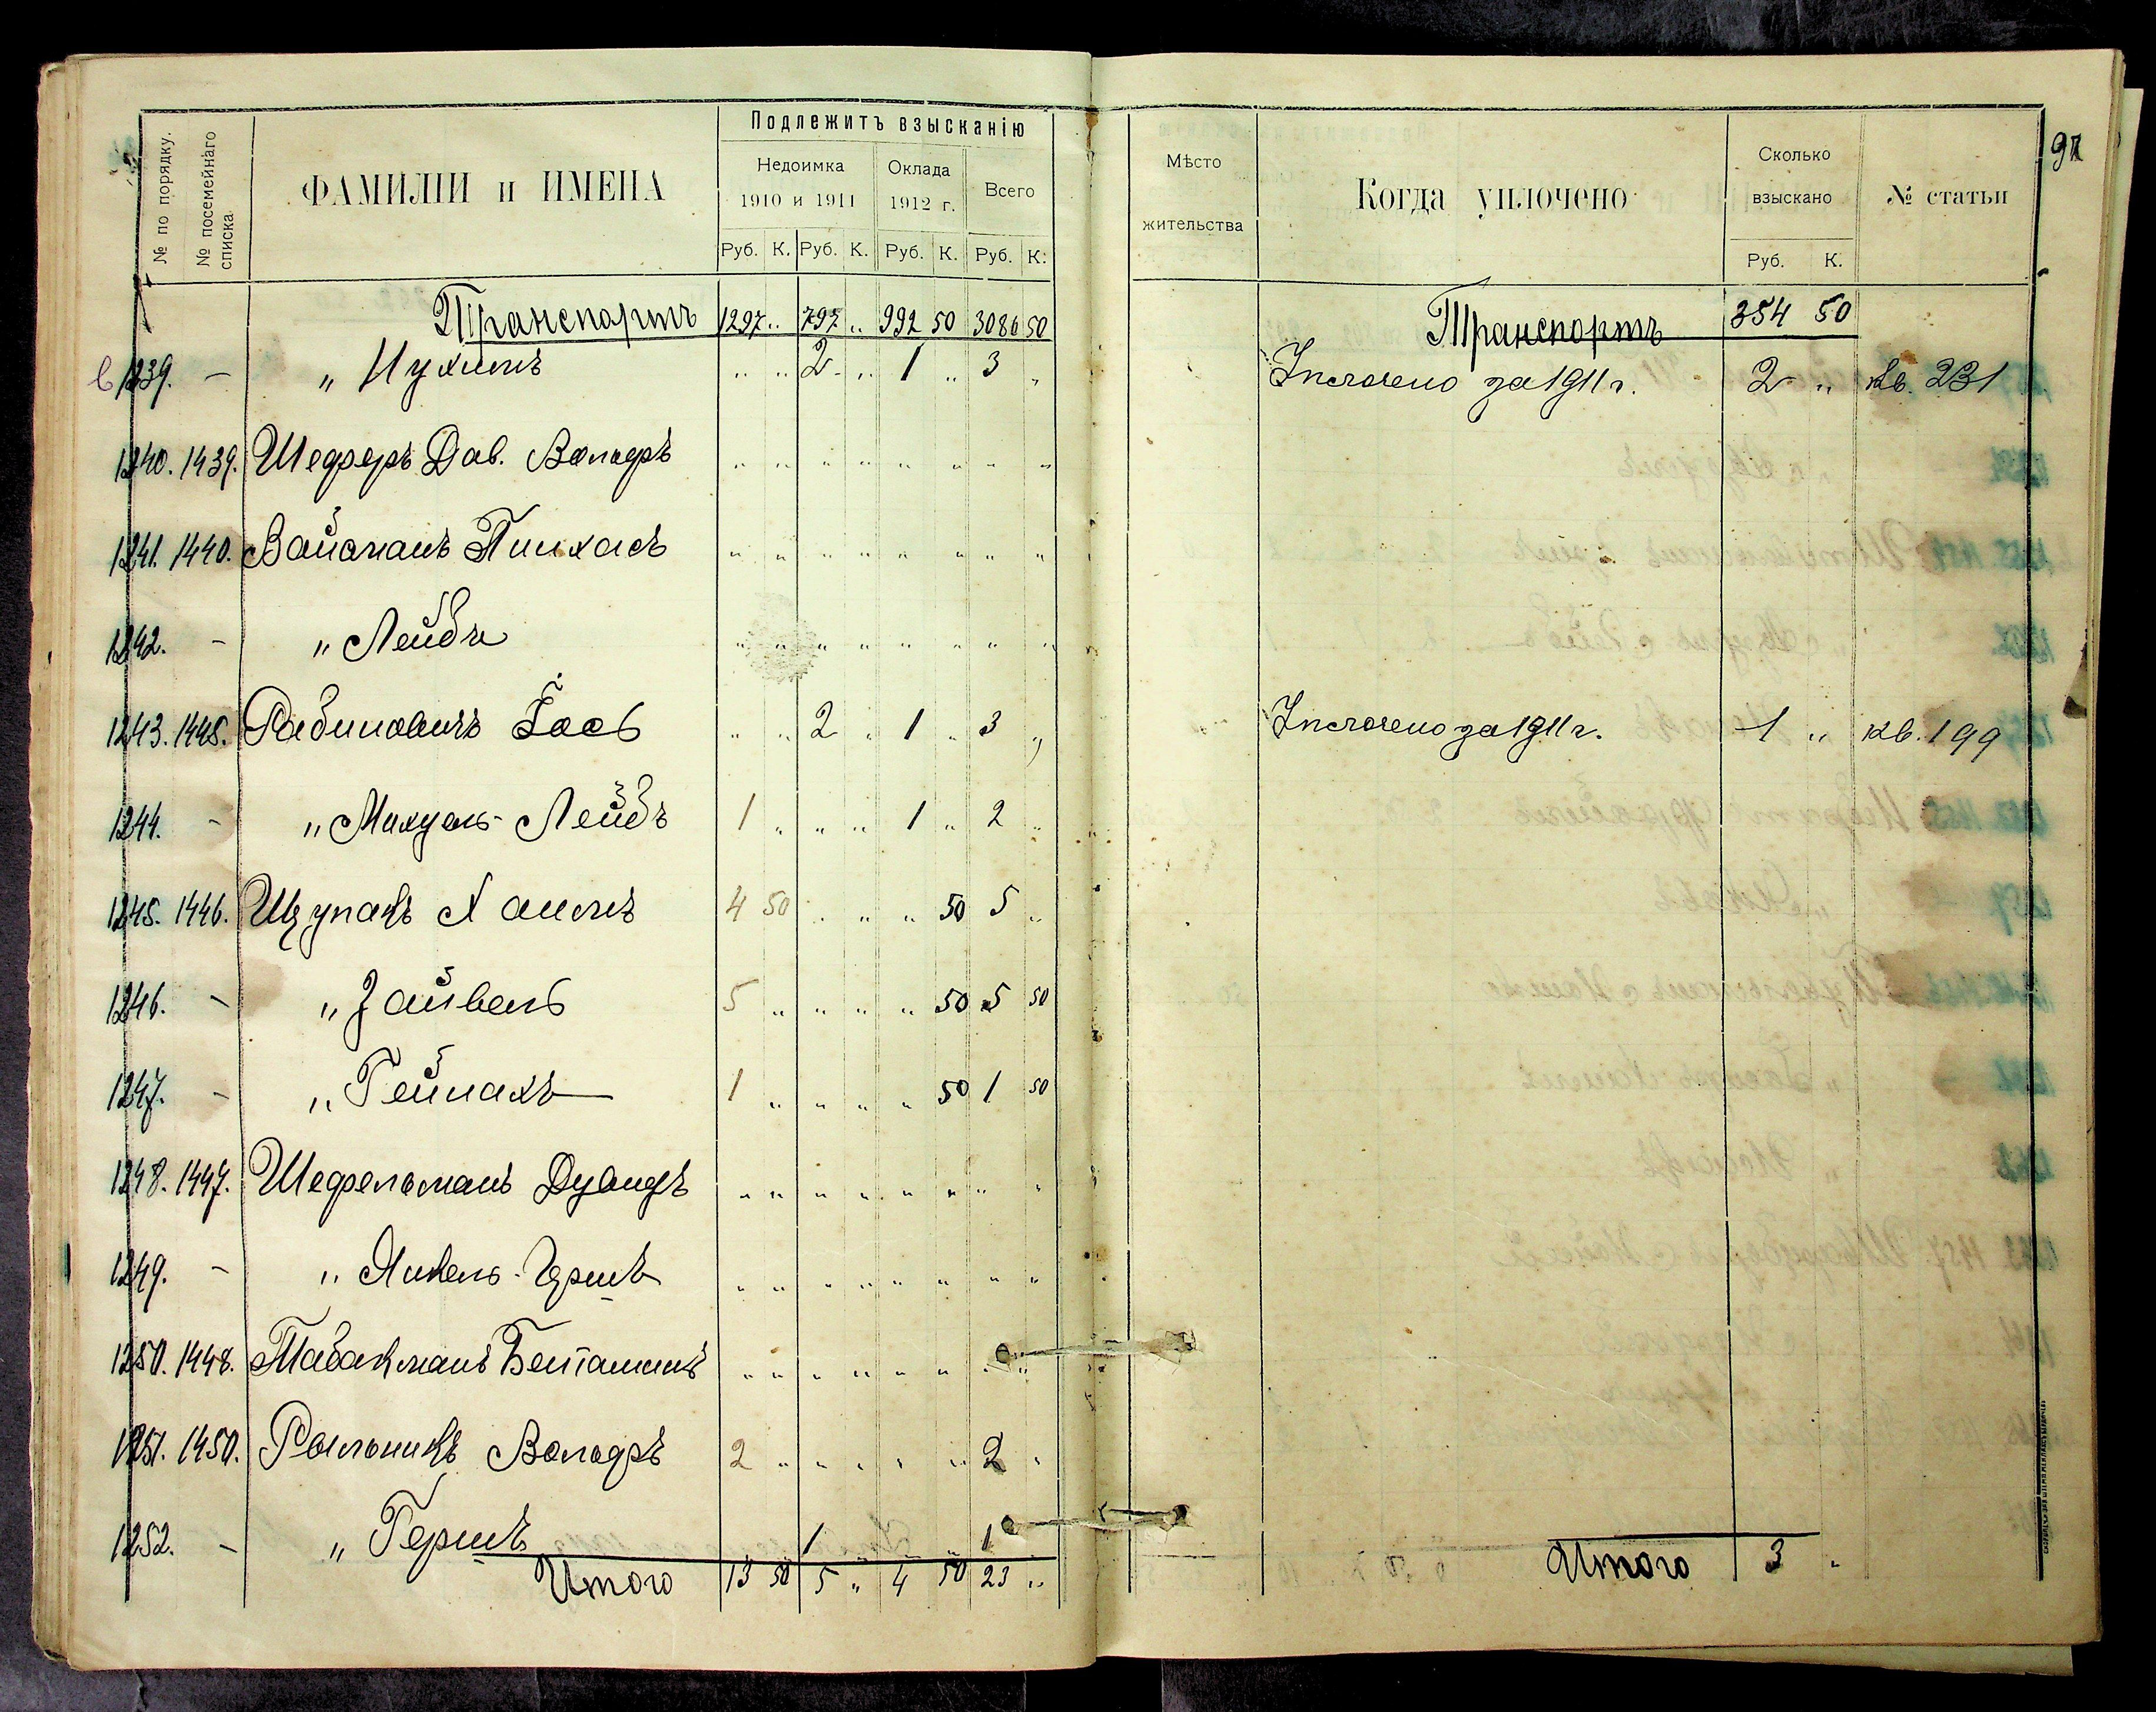 № по порядку.
№ посемейнаго списка
ФАМИЛІИ и ИМЕНА
Подлежитъ взысканію
Недоимка
1910 и 1911
Оклада
1912 г.
Всего
Руб. К. Руб. К. Руб. К. Руб. К.
Транспортъ 1297 „ 797 „ 992 50 3086 50
1239. – „ Нухимъ „ „ 2 „ 1 „ 3 „
1240. 1439. Шефферъ Дав. Вольфъ „ „ „ „ „ „ „ „
1241. 1440. Вайсманъ Пинхасъ „ „ „ „ „ „ „ „
1242. – „ Лейбъ „ „ „ „ „ „ „ „
1243. 1445. Рабиновичъ Іось „ „ 2 „ 1 „ 3 „
1244. – „ Лейбъ 1 „ „ „ 1 „ 2 „
1245. 1446. Щупакъ Хаимъ 4 50 „ „ „ 50 5 „
1246. – „ Зайвель 5 „ „ „ „ 50 5 50
1247. – „ Гейнахъ 1 „ „ „ „ 50 1 50
1248. 1447. Шефельманъ Дувидъ „ „ „ „ „ „ „ „
1249. – „ Янкель-Гершъ „ „ „ „ „ „ „ „
1250. 1448. Табакманъ Беніаминъ „ „ „ „ „ „ „ „
1251. 1450. Вольфъ 2 „ „ „ „ „ 2 „
1252. – „ Гершъ 1 1
Итого 13 50 5 „ 4 50 23 „
97
Мѣсто
жительства
Когда уплочено
Сколько
взыскано
Руб. К.
№ статьи
Транспортъ 354 50
за 1911 г. 2 „ кв. 231
за 1911 г. 1 „ кв. 199
Итого 3 „